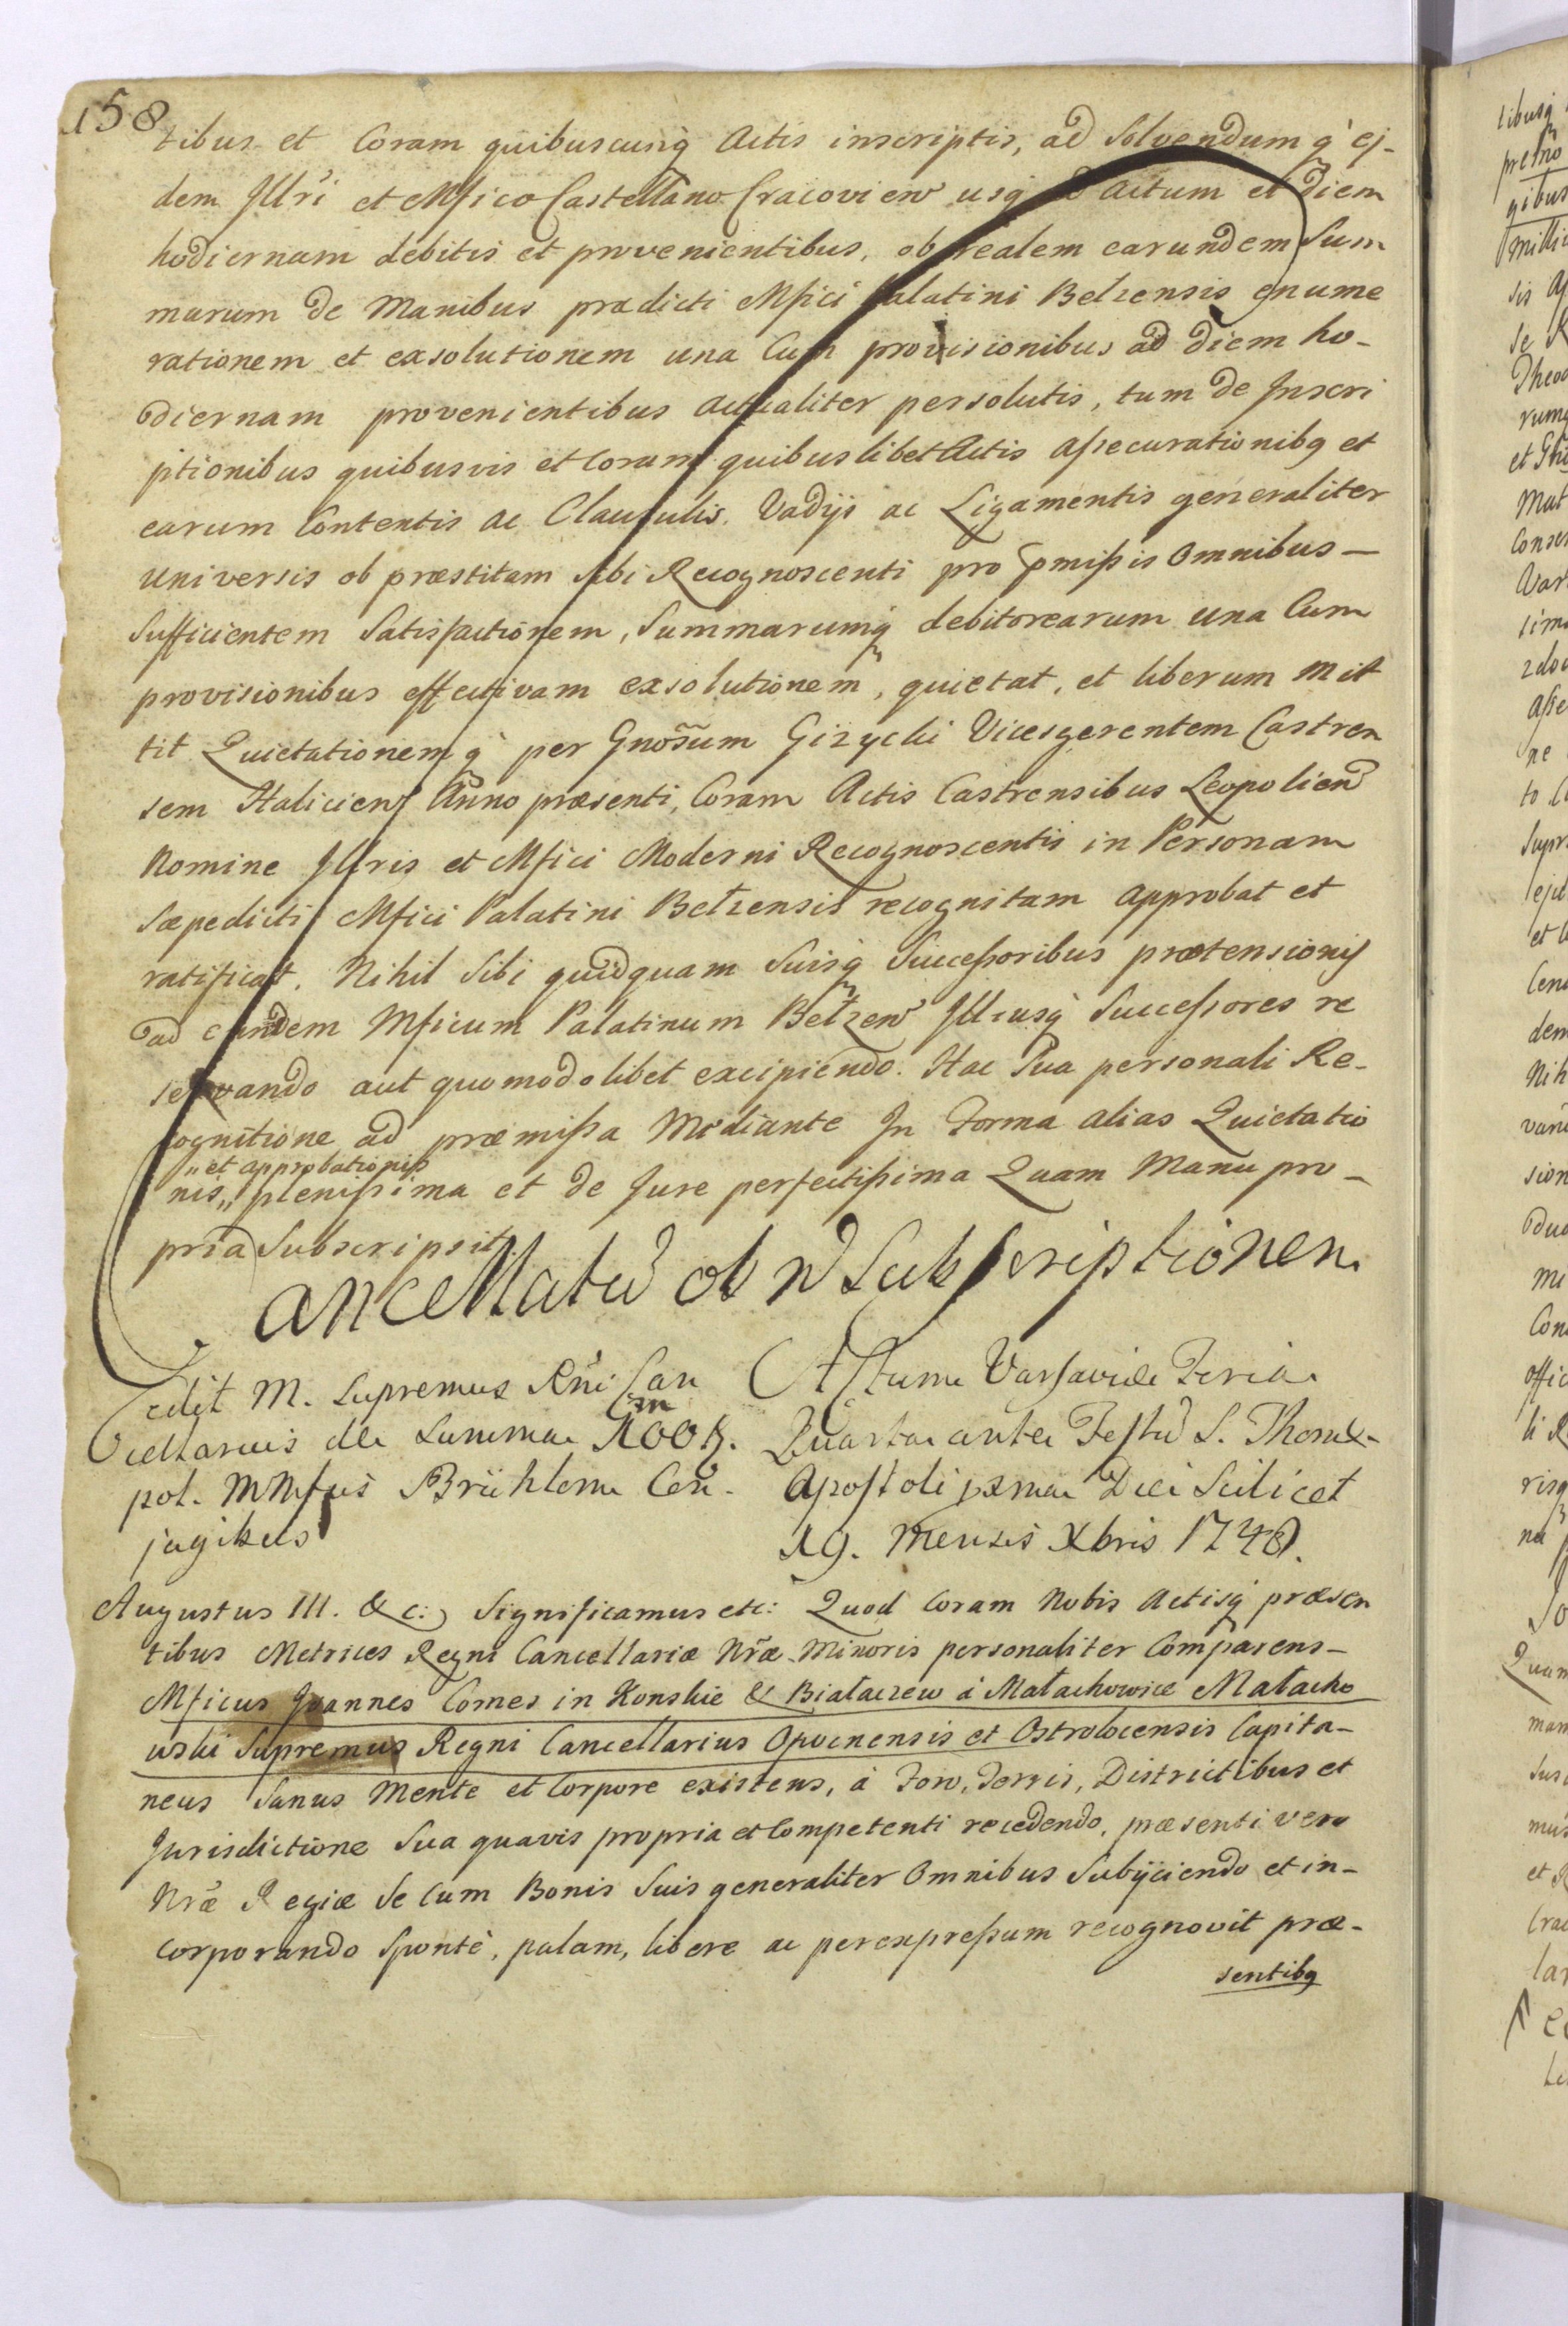 158
tibus et Coram quibuscunq Actis inscriptis, ad Solvendum q' ej-
dem Jllri et Mfico Castellano Cracovien usq ad actum et diem
hodiernam debitis et provenientibus, ob realem earundem Sum
marum de Manibus prædicti Mfici Palatini Bełzensis enume
rationem et exsolutionem una Cum provisionibus ad diem ho-
diernam provenientibus actualiter persolutis, tum de Jnscri
ptionibus quibusvis et Coram quibuslibet Actis assecurationibq et
earum Contentis ac Clausulis, Vadijs ac Ligamentis generaliter
universis ob præstitam sibi Recognoscenti pro pmissis Omnibus -
Sufficientem Satisfactionem, Summarumq debitorearum una Cum
provisionibus effectivam exsolutionem, quietat, et liberum mit
tit Quietationem q' per Gnosum Gizycki Vicesgerentem Castren
sem Haliciens Anno præsenti, Coram Actis Castrensibus Leopolien
Nomine Jllris et Mfici Moderni Recognoscentis in Personam
Sæpedicti Mfici Palatini Bełzensis recognitam approbat et
ratificat. Nihil Sibi quidquam Suisq Successoribus prætensionis
ad eundem Mficum Palatinum Bełzen Jlliusq Successores re
servando aut quomodolibet excipiendo. Hac Sua personali Re-
cognitione ad præmissa Mediante Jn Forma alias Quietatio
„et approbationis
nis„ plenissima et de Jure perfectissima Quam Manu pro-
pria Subscripsit.
Cancellatu ob n Subscriptionem
Cedit M. Supremus Rni Can
cellarius de Summa 100 m
pol. MMfus Brühlom Con-
jugibus
Actum Varsaviæ Feria
Quarta ante Festu S. Thomæ
Apostoli pxma Die Scilicet
19. Mensis Xbris 1748.
Augustus III. & c: Significamus etc: Quod Coram Nobis Actisq præsen
tibus Metrices Regni Cancellariæ Nræ Minoris personaliter Comparens -
Mficus Joannes Comes in Konskie & Białaczew à Małachowice Małacho
wski Supremus Regni Cancellarius Opocnensis et Ostrolocensis Capita-
neus Sanus Mente et Corpore existens, à Foro, Terris, Districtibus et
Jurisdictione Sua quavis propria et Competenti recedendo, præsenti vero
Nræ Regiæ Se Cum Bonis Suis generaliter Omnibus Subijciendo et in-
corporando Spontè, palam, libere ac per expressum recognovit præ-
sentibq